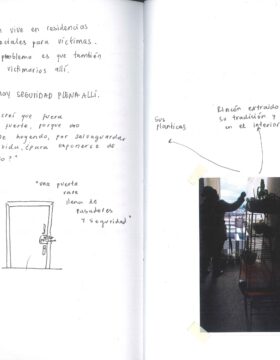 vive en residencias
para víctimas.
problema es que también
victimarios allí.
SEGURIDAD PLENA ALLÍ.
que fuera
puerta, porque uno
huyendo, por salvaguardar
vida, ¿para exponerse de
"una puerta
vaya
llena de
pasadores
y seguridad"
Sus
planticas
Rincón extraído
su tradición y
en el interior